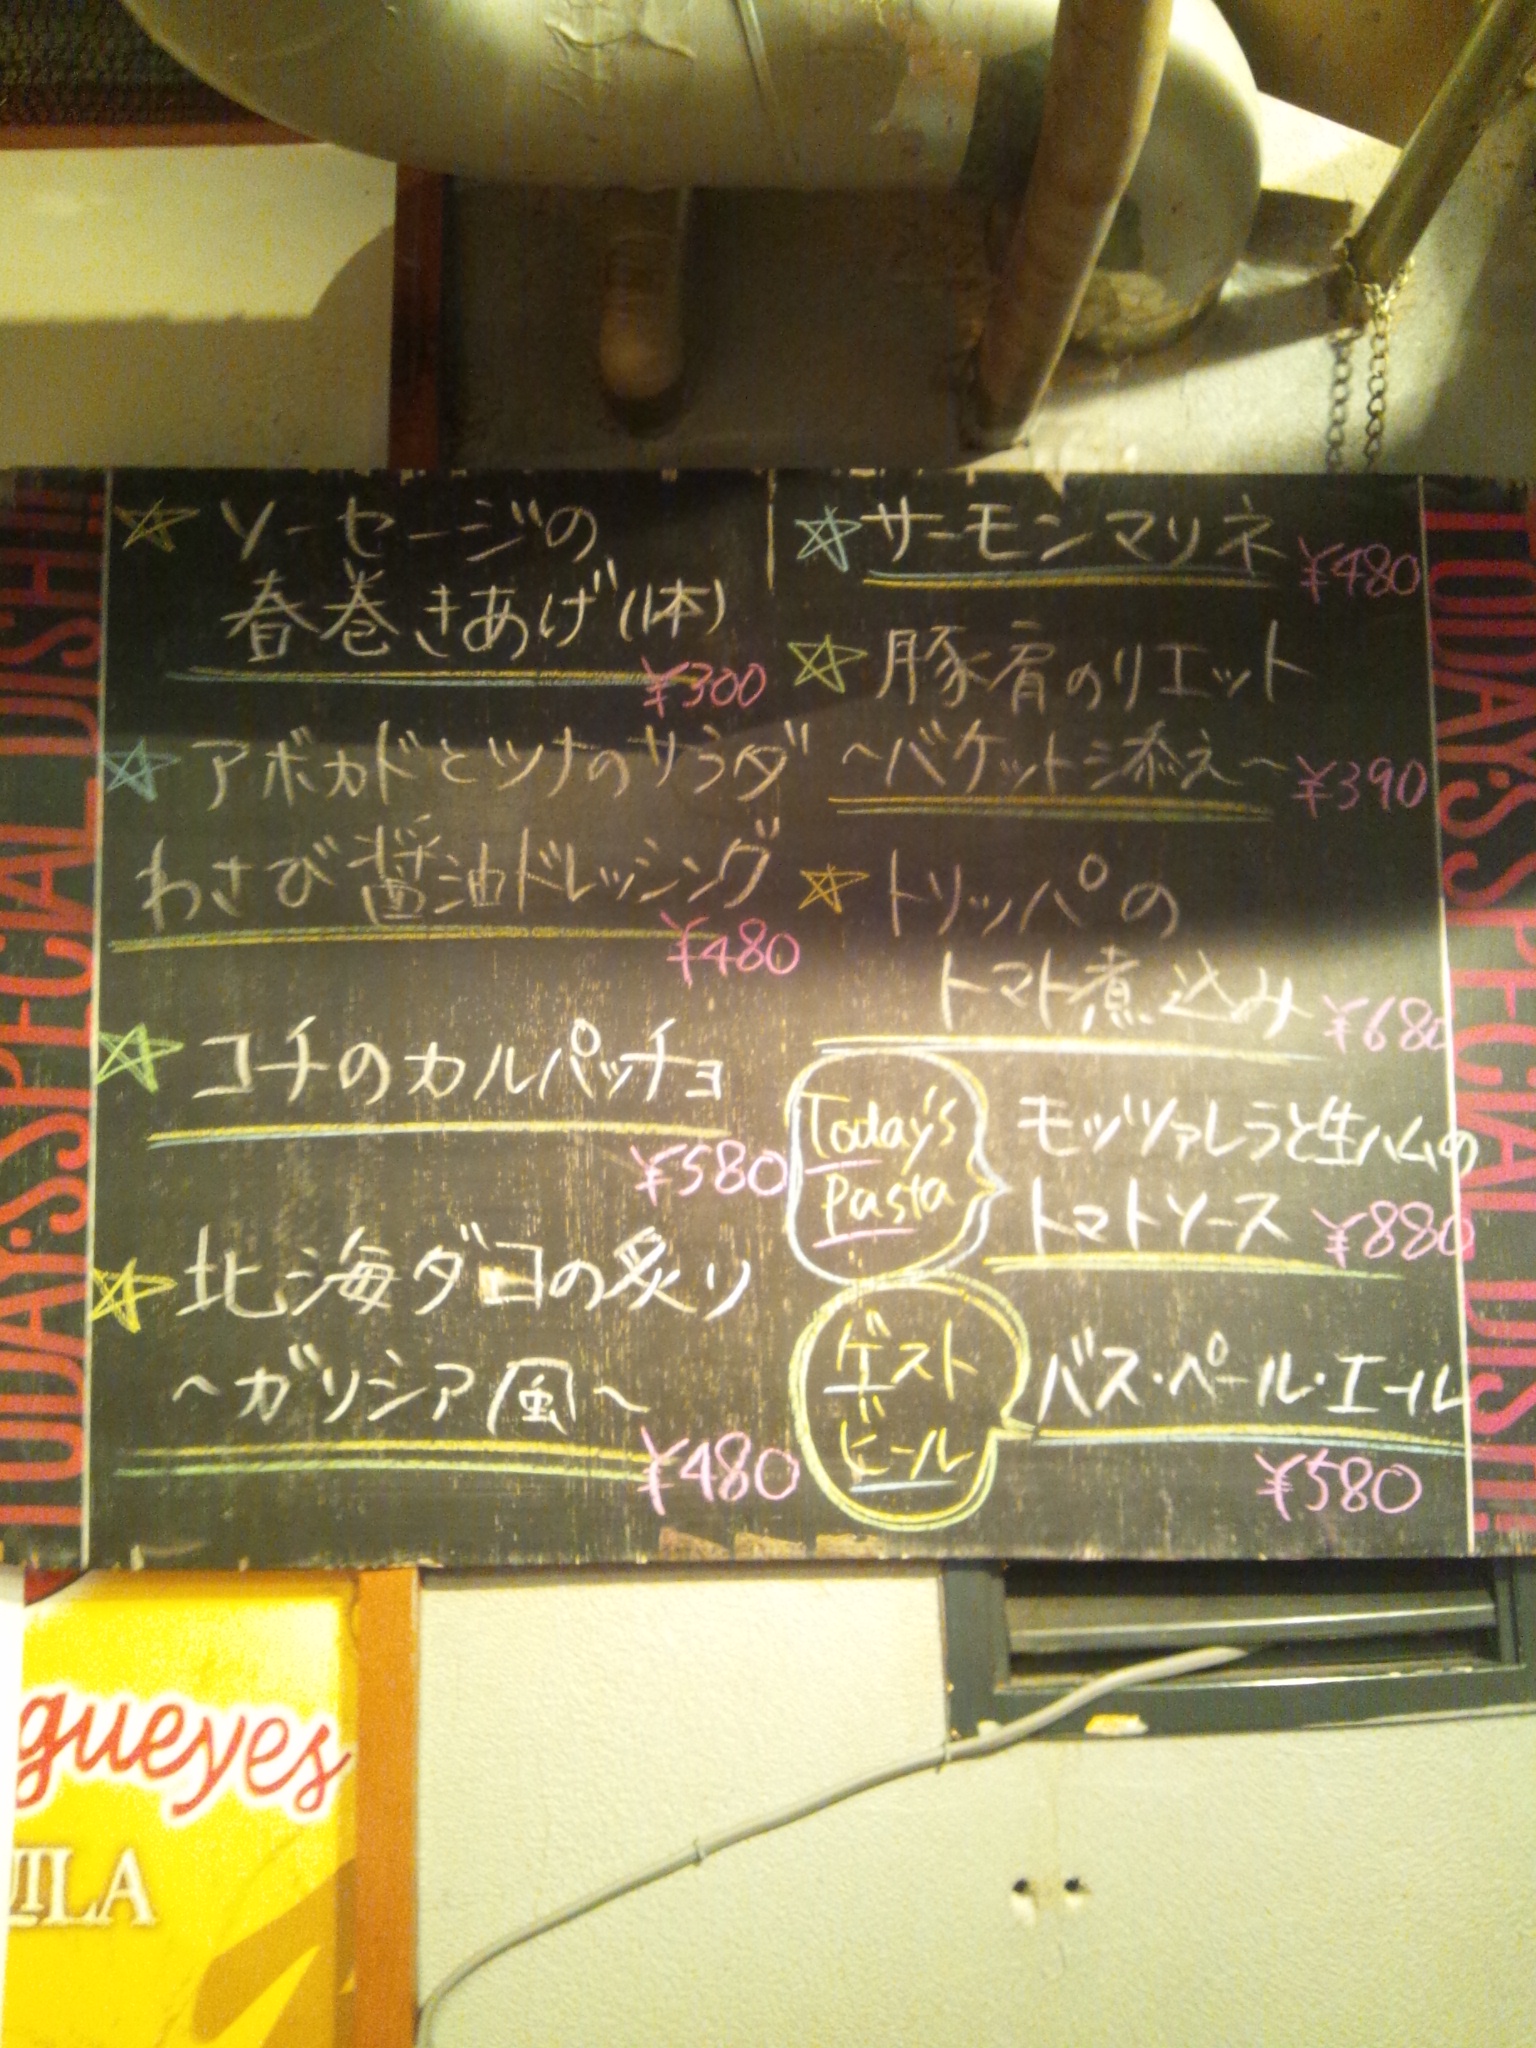 TODAY'S SPECIAL DISH!!
ソーセージの
春巻きあげ(1本)
¥300
アボカドとツナのサラダ
わさび醤油ドレッシング
¥480
コチのカルパッチョ
¥580
北海ダコの炙り
~ガリシア風~
¥480
サーモンマリネ
¥480
豚肩のリエット
~バケット添え~
¥390
トリッパの
トマト煮込み
¥680
Today's
Pasta
モッツァレラと生ハムの
トマトソース
¥880
ゲスト
ビール
バス・ペール・エール
¥580
TODAY'S SPECIAL DISH!!
gueyes
UILA